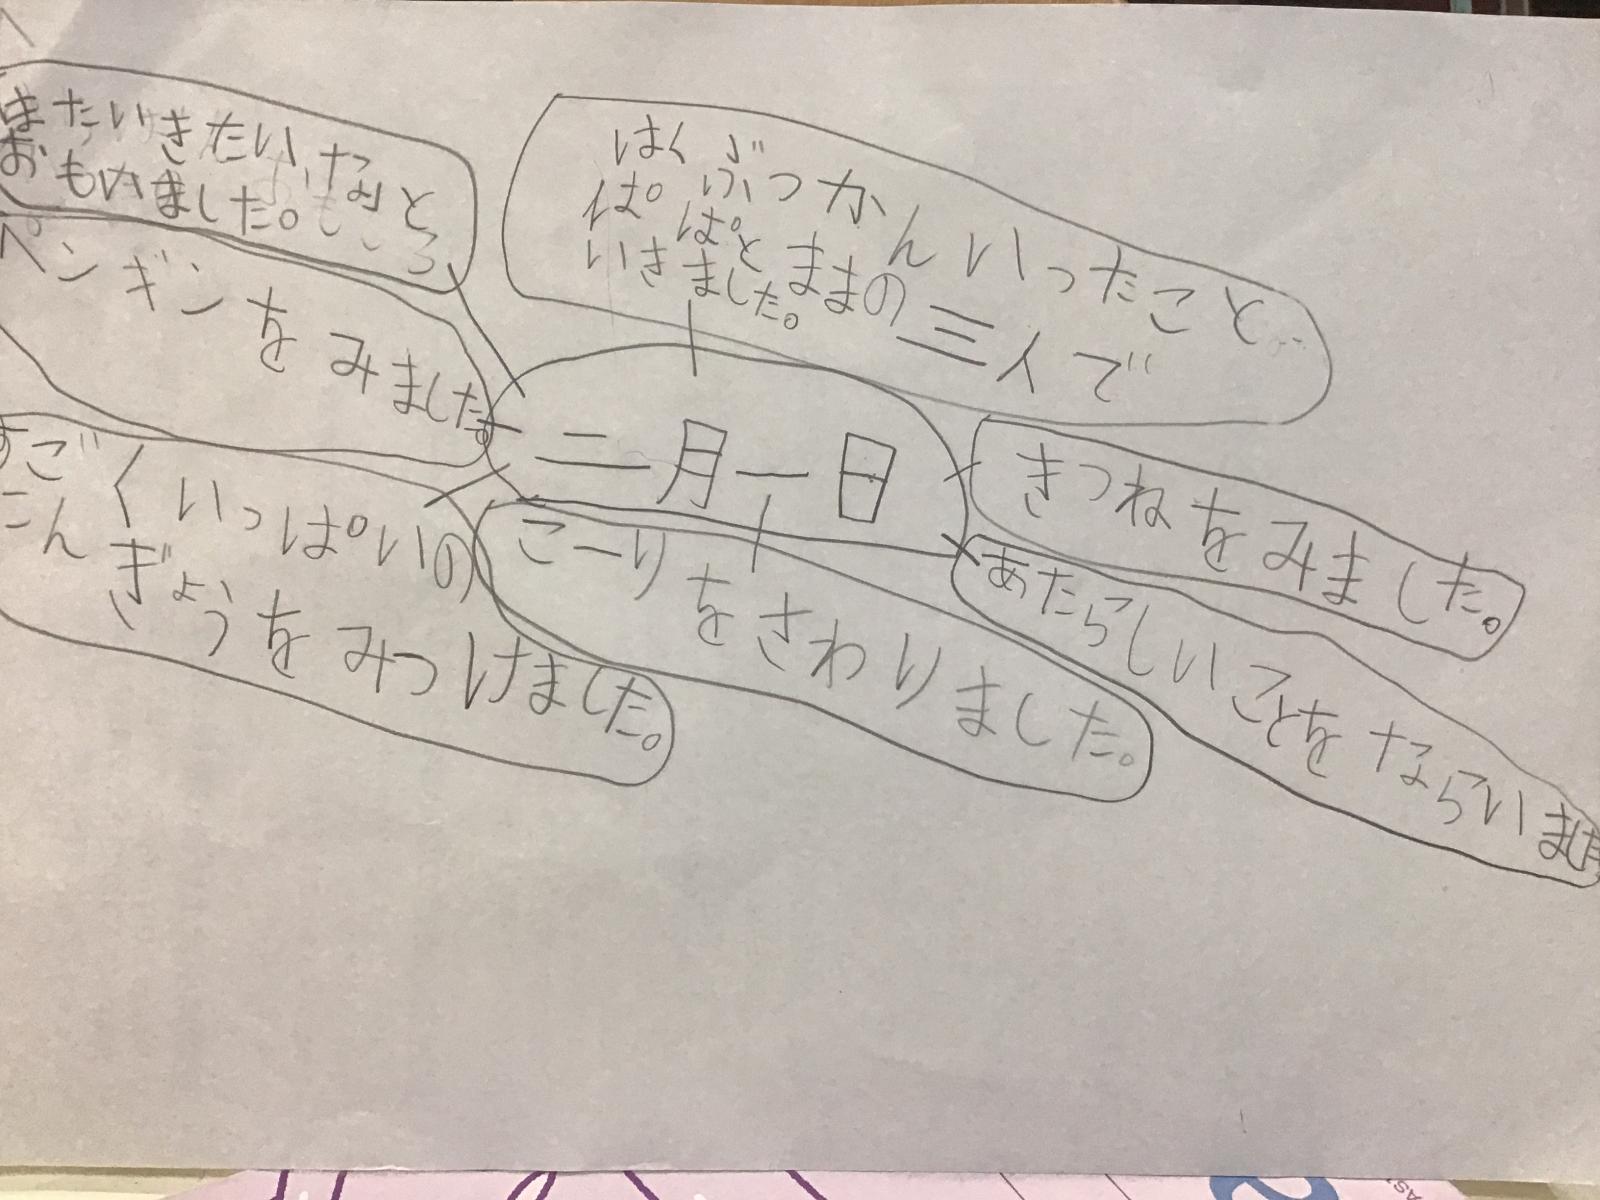 またいきたいなと
おもいました。
はくぶつかんいったこと
ぱぱとままの三人で
いきました。
ペンギンをみました。
二月一日
きつねをみました。
すごくいっぱいの
こんぎょうをみつけました。
こーりをさわりました。
あたらしいことをならいました